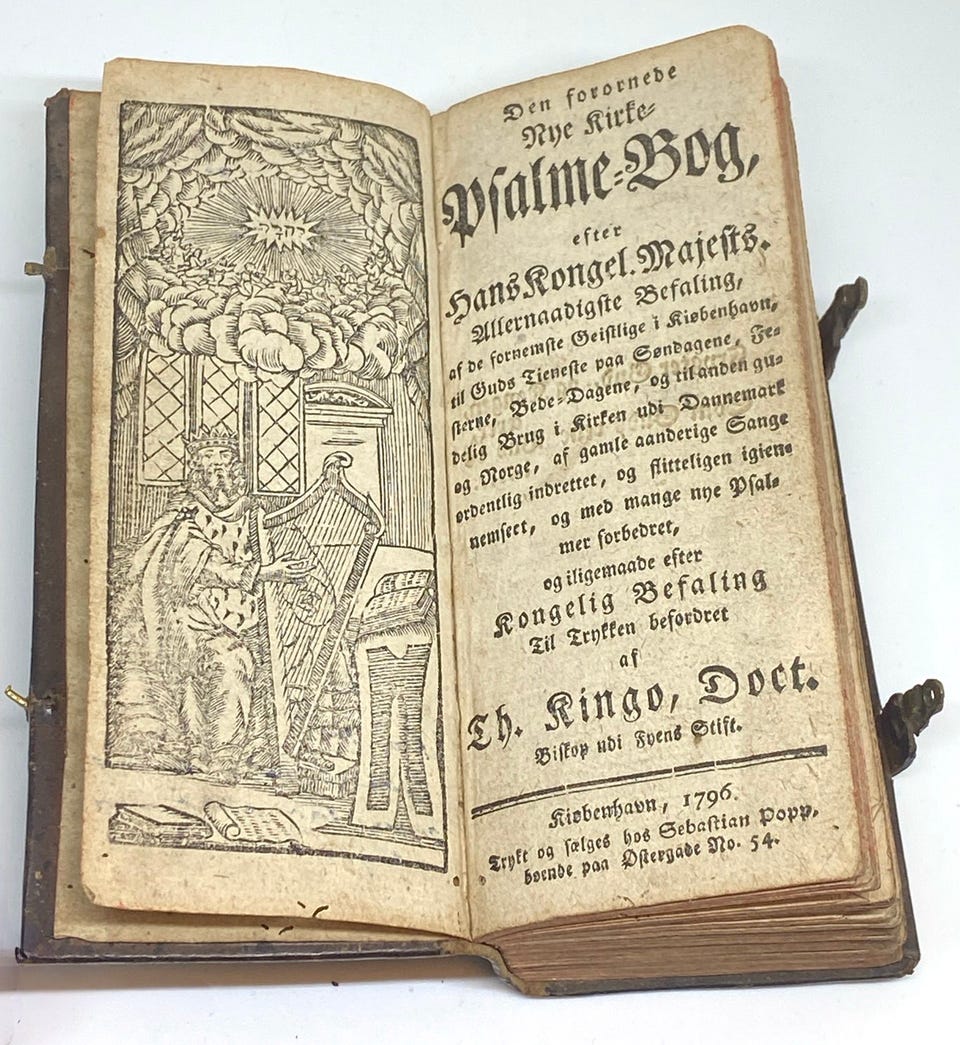 Den forornede
Nye Kirke-
Psalme-Bog,
efter
Hans Kongel. Majests.
Allernaadigste Befaling,
af de fornemste Geistlige i Kiøbenhavn,
til Guds Tieneste paa Søndagene, Fe-
sterne, Bede-Dagene, og til anden gu-
delig Brug i Kirken udi Dannemark
og Norge, af gamle aanderige Sange
ordentlig indrettet, og flitteligen igien-
nemseet, og med mange nye Psal-
mer forbedret,
og iligemaade efter
Kongelig Befaling
Til Trykken befordret
af
Th. Kingo, Doct.
Biskop udi Fyens Stift.
Kiøbenhavn, 1796.
Trykt og sælges hos Sebastian Popp,
boende paa Østergade No. 54.